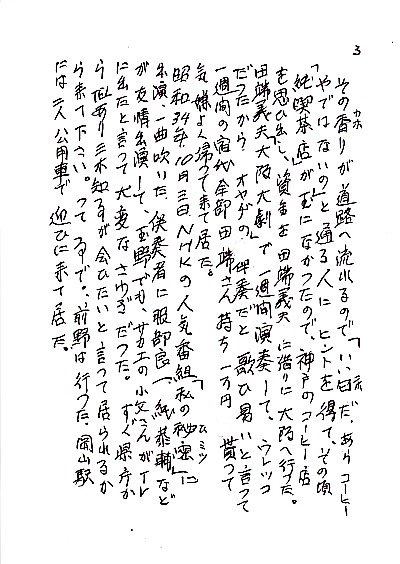 3
その香りが道路へ流れるので「いい匂だ、ありゃコーヒー
やではないの」と通る人にヒントを得て、その頃
純喫茶店が玉になかったので、神戸のコーヒー店
を思ひ出し、資金を田端義夫に借りに大阪へ行った。
田端義夫「大阪大劇」で一週間演奏して、ウレッコ
だったから、オヤジの伴奏だと歌ひ易いと言って
一週間の宿代全部田端さん持ち一万円貰って
気嫌よく帰って来て居た。
昭和34年10月三日NHKの人気番組「私の秘密」に
出演、一曲吹いた、伴奏者に服部良一、紙恭輔など
が友情出演して、玉野でも、サカエの小父さんがテレ
に出たと言って大変なさわぎだった。すぐ県庁か
ら 三木知事が会ひたいと言って居られるか
ら来て下さい。って 前野は行った、岡山駅
には二人公用車で迎ひに来て居た。